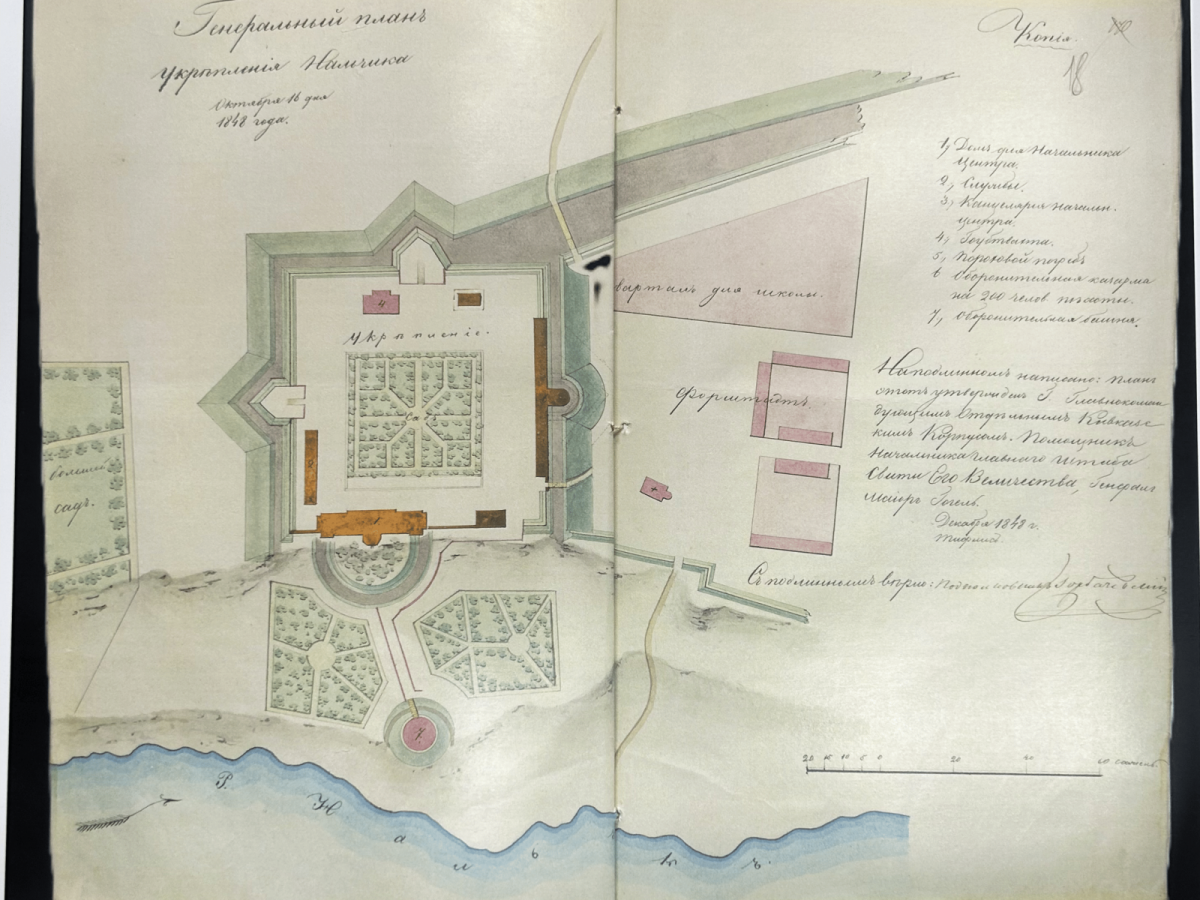 Генеральный планъ
укрѣпленія Нальчика
Октября 16 дня
1848 года.
Копія.
18
1, Домъ для Начальника
Центра.
2, Службы.
3, Канцелярія Начальн.
центра.
4, Гоубтвахта.
5, Пороховой погребъ
6 Оборонительная казарма
на 200 челов пѣхоты.
7, Оборонительная башня.
4
Укрѣпленіе.
варталъ для школы.
Форштадтъ.
Садъ
большой
садъ.
1
7
На подлинномъ написано: Планъ
этотъ утвержденъ Г. Главнокоманд
ующимъ Отдѣльнымъ Кавказс
кимъ Корпусомъ. Помощникъ
Начальника главнаго штаба
Свиты Его Величества, Генералъ
маіоръ Гогель.
Декабря 1848 г.
Тифлисъ
Съ подлиннымъ вѣрно: Подполковникъ Горбачевскій
20 15 10 5 0 20 40 60 сажень
Р. Нальчикъ.